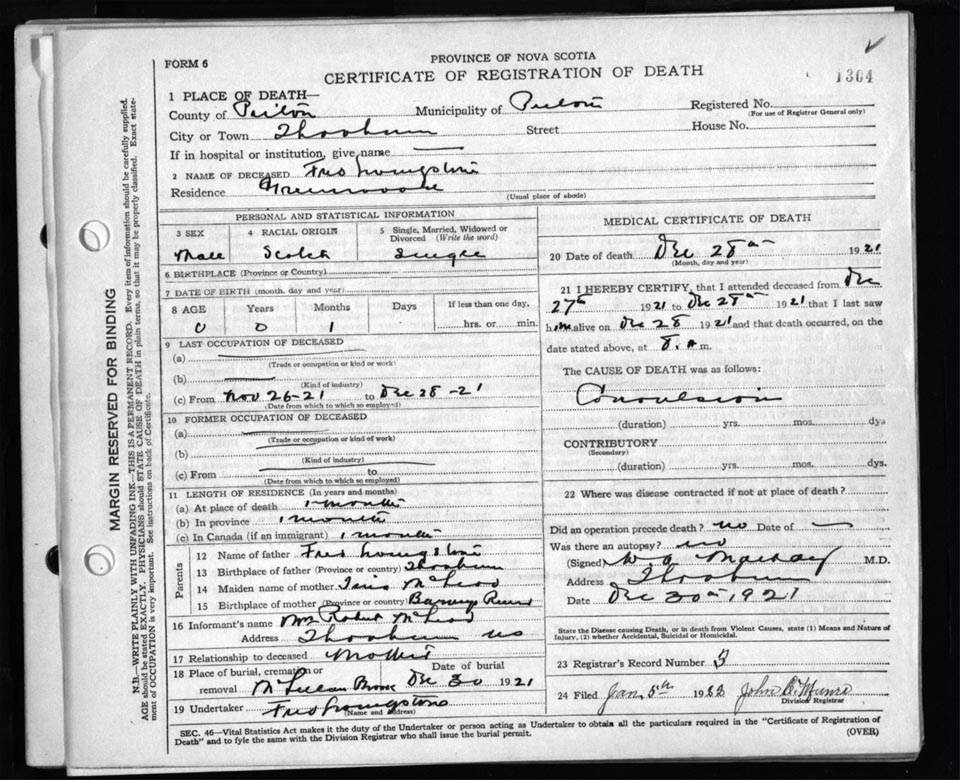 FORM 6
PROVINCE OF NOVA SCOTIA
CERTIFICATE OF REGISTRATION OF DEATH
1364
1 PLACE OF DEATH—
County of Pictou Municipality of Pictou Registered No.
(For use of Registrar General only)
City or Town Thorburn Street House No.
If in hospital or institution, give name
2 NAME OF DECEASED Fred Livingstone
Residence Greenwood
(Usual place of abode)
PERSONAL AND STATISTICAL INFORMATION
3 SEX 4 RACIAL ORIGIN 5 Single, Married, Widowed or Divorced (Write the word)
Male Scotch Single
6 BIRTHPLACE (Province or Country)
7 DATE OF BIRTH (month, day and year)
8 AGE Years Months Days If less than one day,
0 0 1 hrs. or min.
9 LAST OCCUPATION OF DECEASED
(a)
(Trade or occupation or kind or work)
(b)
(Kind of industry)
(c) From Nov 26-21 to Dec 28-21
(Date from which to which so employed)
10 FORMER OCCUPATION OF DECEASED
(a)
(Trade or occupation or kind of work)
(b)
(Kind of industry)
(c) From to
(Date from which to which so employed)
11 LENGTH OF RESIDENCE (In years and months)
(a) At place of death 1 month
(b) In province 1 month
(c) In Canada (if an immigrant) 1 month
Parents
12 Name of father Fred Livingstone
13 Birthplace of father (Province or country) Thorburn
14 Maiden name of mother McLeod
15 Birthplace of mother (Province or country) Barneys River
16 Informant's name Mrs Robert McLeod
Address Thorburn NS
17 Relationship to deceased Mother
18 Place of burial, cremation or Date of burial
removal McLellan Brook Dec 30 1921
19 Undertaker Fred Livingstone
(Name and address)
MEDICAL CERTIFICATE OF DEATH
20 Date of death Dec 28th 1921
(Month, day and year)
21 I HEREBY CERTIFY, that I attended deceased from Dec
27th 1921 to Dec 28th 1921 that I last saw
him alive on Dec 28 1921 and that death occurred, on the
date stated above, at 8. a m.
The CAUSE OF DEATH was as follows:
Convulsion
(duration) yrs. mos. dys
CONTRIBUTORY
(Secondary)
(duration) yrs. mos. dys.
22 Where was disease contracted if not at place of death?
Did an operation precede death? no Date of
Was there an autopsy? no
(Signed) MacKay M.D.
Address Thorburn
Date Dec 30th 1921
State the Disease causing Death, or in death from Violent Causes, state (1) Means and Nature of
Injury, (2) whether Accidental, Suicidal or Homicidal.
23 Registrar's Record Number 3
24 Filed Jan 5th 1922 John D. Munro
Division Registrar
SEC. 46—Vital Statistics Act makes it the duty of the Undertaker or person acting as Undertaker to obtain all the particulars required in the "Certificate of Registration of
Death" and to fyle the same with the Division Registrar who shall issue the burial permit. (OVER)
MARGIN RESERVED FOR BINDING
N.B.—WRITE PLAINLY WITH UNFADING INK—THIS IS A PERMANENT RECORD. Every item of information should be carefully supplied.
AGE should be stated EXACTLY. PHYSICIANS should STATE CAUSE OF DEATH in plain terms, so that it may be properly classified. Exact state-
ment of OCCUPATION is very important. See instructions on back of Certificate.